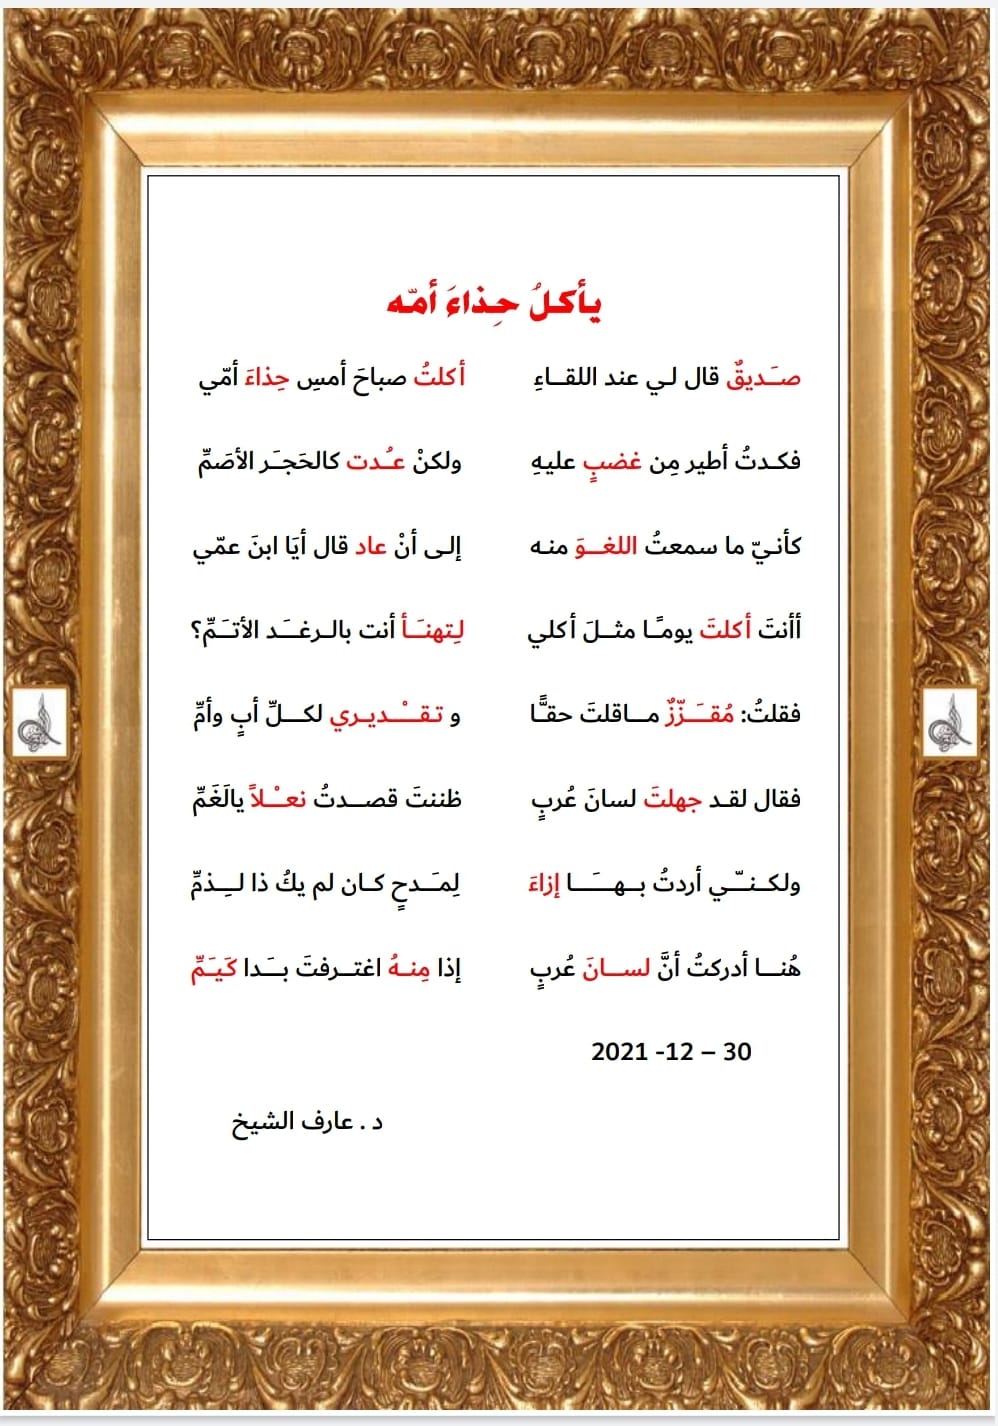 يأكلُ حِذاءَ أمّه
صَديقٌ قال لي عند اللقاءِ أكلتُ صباحَ أمسِ حِذاءَ أمّي
فكدتُ أطير مِن غضبٍ عليهِ ولكنْ عُدت كالحَجَر الأصَمِّ
كأنيّ ما سمعتُ اللغوَ منه إلى أنْ عاد قال أيَا ابنَ عمّي
أأنتَ أكلتَ يومًا مثلَ أكلي لِتهنَأ أنت بالرغَد الأتَمِّ؟
فقلتُ: مُقَزّزٌ ماقلتَ حقًّا و تقْديري لكلِّ أبٍ وأمِّ
فقال لقد جهلتَ لسانَ عُربٍ ظننتَ قصدتُ نعْلاً يالَغَمِّ
ولكنّي أردتُ بهَا إزاءَ لِمَدحٍ كان لم يكُ ذا لِذمِّ
هُنا أدركتُ أنَّ لسانَ عُربٍ إذا مِنهُ اغترفتَ بَدا كَيَمِّ
30 – 12- 2021
د . عارف الشيخ